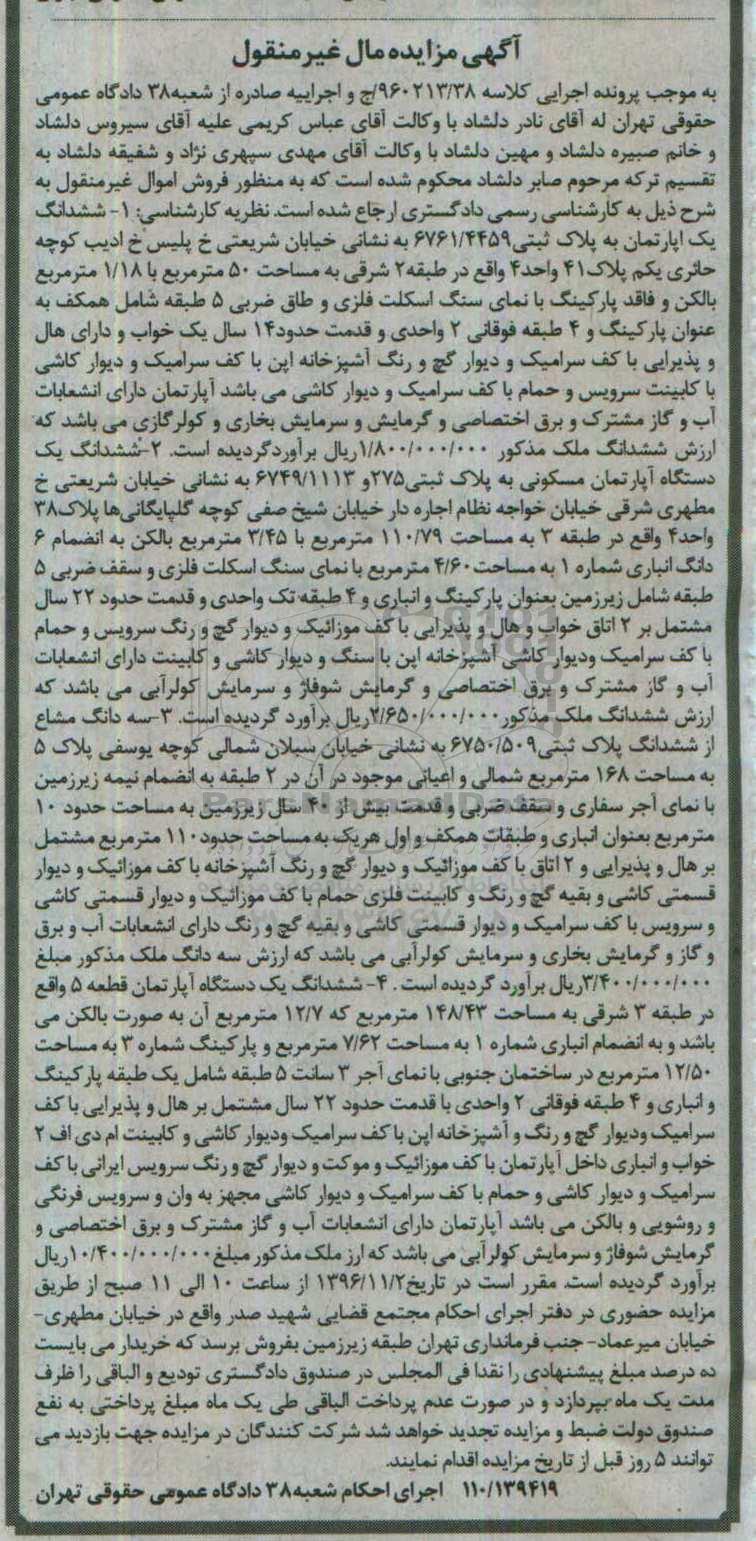 آگهی مزایده مال غیرمنقول
به موجب پرونده اجرایی کلاسه ۹۶۰۲۱۳/۳۸/ج و اجراییه صادره از شعبه۳۸ دادگاه عمومی
حقوقی تهران له آقای نادر دلشاد با وکالت آقای عباس کریمی علیه آقای سیروس دلشاد
و خانم صبیره دلشاد و مهین دلشاد با وکالت آقای مهدی سپهری نژاد و شفیقه دلشاد به
تقسیم ترکه مرحوم صابر دلشاد محکوم شده است که به منظور فروش اموال غیرمنقول به
شرح ذیل به کارشناسی رسمی دادگستری ارجاع شده است. نظریه کارشناسی: ۱- ششدانگ
یک اپارتمان به پلاک ثبتی۶۷۶۱/۴۴۵۹ به نشانی خیابان شریعتی خ پلیس خ ادیب کوچه
حائری یکم پلاک۴۱ واحد۴ واقع در طبقه۲ شرقی به مساحت ۵۰ مترمربع با ۱/۱۸ مترمربع
بالکن و فاقد پارکینگ با نمای سنگ اسکلت فلزی و طاق ضربی ۵ طبقه شامل همکف به
عنوان پارکینگ و ۴ طبقه فوقانی ۲ واحدی و قدمت حدود۱۴ سال یک خواب و دارای هال
و پذیرایی با کف سرامیک و دیوار گچ و رنگ آشپزخانه اپن با کف سرامیک و دیوار کاشی
با کابینت سرویس و حمام با کف سرامیک و دیوار کاشی می باشد آپارتمان دارای انشعابات
آب و گاز مشترک و برق اختصاصی و گرمایش و سرمایش بخاری و کولرگازی می باشد که
ارزش ششدانگ ملک مذکور ۱/۸۰۰/۰۰۰/۰۰۰ریال برآوردگردیده است. ۲-ششدانگ یک
دستگاه آپارتمان مسکونی به پلاک ثبتی۲۷۵و ۶۷۴۹/۱۱۱۳ به نشانی خیابان شریعتی خ
مطهری شرقی خیابان خواجه نظام اجاره دار خیابان شیخ صفی کوچه گلپایگانی‌ها پلاک۳۸
واحد۴ واقع در طبقه ۳ به مساحت ۱۱۰/۷۹ مترمربع با ۳/۴۵ مترمربع بالکن به انضمام ۶
دانگ انباری شماره ۱ به مساحت۴/۶۰ مترمربع با نمای سنگ اسکلت فلزی و سقف ضربی ۵
طبقه شامل زیرزمین بعنوان پارکینگ و انباری و ۴ طبقه تک واحدی و قدمت حدود ۲۲ سال
مشتمل بر ۲ اتاق خواب و هال و پذیرایی با کف موزائیک و دیوار گچ و رنگ سرویس و حمام
با کف سرامیک ودیوار کاشی آشپزخانه اپن با سنگ و دیوار کاشی و کابینت دارای انشعابات
آب و گاز مشترک و برق اختصاصی و گرمایش شوفاژ و سرمایش کولرآبی می باشد که
ارزش ششدانگ ملک مذکور۲/۶۵۰/۰۰۰/۰۰۰ریال برآورد گردیده است. ۳-سه دانگ مشاع
از ششدانگ پلاک ثبتی۶۷۵۰/۵۰۹ به نشانی خیابان سبلان شمالی کوچه یوسفی پلاک ۵
به مساحت ۱۶۸ مترمربع شمالی و اعیانی موجود در آن در ۲ طبقه به انضمام نیمه زیرزمین
با نمای آجر سفاری و سقف ضربی و قدمت بیش از ۴۰ سال زیرزمین به مساحت حدود ۱۰
مترمربع بعنوان انباری و طبقات همکف و اول هریک به مساحت حدود ۱۱۰ مترمربع مشتمل
بر هال و پذیرایی و ۲ اتاق با کف موزائیک و دیوار گچ و رنگ آشپزخانه با کف موزائیک و دیوار
قسمتی کاشی و بقیه گچ و رنگ و کابینت فلزی حمام با کف موزائیک و دیوار قسمتی کاشی
و سرویس با کف سرامیک و دیوار قسمتی کاشی و بقیه گچ و رنگ دارای انشعابات آب و برق
و گاز و گرمایش بخاری و سرمایش کولرآبی می باشد که ارزش سه دانگ ملک مذکور مبلغ
۳/۴۰۰/۰۰۰/۰۰۰ریال برآورد گردیده است . ۴- ششدانگ یک دستگاه آپارتمان قطعه ۵ واقع
در طبقه ۳ شرقی به مساحت ۱۴۸/۴۳ مترمربع که ۱۲/۷ مترمربع آن به صورت بالکن می
باشد و به انضمام انباری شماره ۱ به مساحت ۷/۶۲ مترمربع و پارکینگ شماره ۳ به مساحت
۱۲/۵۰ مترمربع در ساختمان جنوبی با نمای آجر ۳ سانت ۵ طبقه شامل یک طبقه پارکینگ
و انباری و ۴ طبقه فوقانی ۲ واحدی با قدمت حدود ۲۲ سال مشتمل بر هال و پذیرایی با کف
سرامیک ودیوار گچ و رنگ و آشپزخانه اپن با کف سرامیک ودیوار کاشی و کابینت ام دی اف ۲
خواب و انباری داخل آپارتمان با کف موزائیک و موکت و دیوار گچ و رنگ سرویس ایرانی با کف
سرامیک و دیوار کاشی و حمام با کف سرامیک و دیوار کاشی مجهز به وان و سرویس فرنگی
و روشویی و بالکن می باشد آپارتمان دارای انشعابات آب و گاز مشترک و برق اختصاصی و
گرمایش شوفاژ و سرمایش کولرآبی می باشد که ارز ملک مذکور مبلغ۱۰/۴۰۰/۰۰۰/۰۰۰ریال
برآورد گردیده است. مقرر است در تاریخ۱۳۹۶/۱۱/۲ از ساعت ۱۰ الی ۱۱ صبح از طریق
مزایده حضوری در دفتر اجرای احکام مجتمع قضایی شهید صدر واقع در خیابان مطهری-
خیابان میرعماد- جنب فرمانداری تهران طبقه زیرزمین بفروش برسد که خریدار می بایست
ده درصد مبلغ پیشنهادی را نقدا فی المجلس در صندوق دادگستری تودیع و الباقی را ظرف
مدت یک ماه بپردازد و در صورت عدم پرداخت الباقی طی یک ماه مبلغ پرداختی به نفع
صندوق دولت ضبط و مزایده تجدید خواهد شد شرکت کنندگان در مزایده جهت بازدید می
توانند ۵ روز قبل از تاریخ مزایده اقدام نمایند.
۱۱۰/۱۳۹۴۱۹ اجرای احکام شعبه۳۸ دادگاه عمومی حقوقی تهران